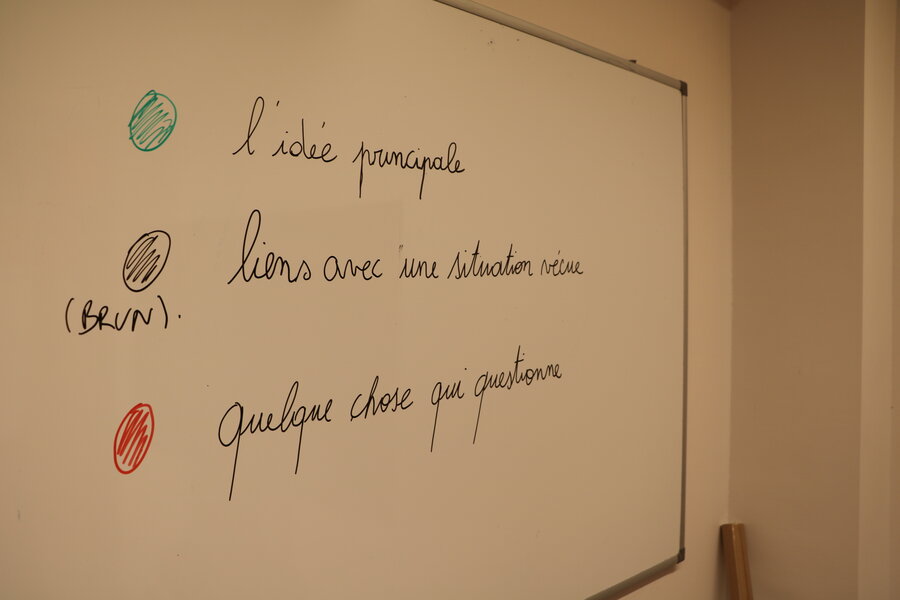 l'idée principale
liens avec une situation vécue
(BRUN).
quelque chose qui questionne